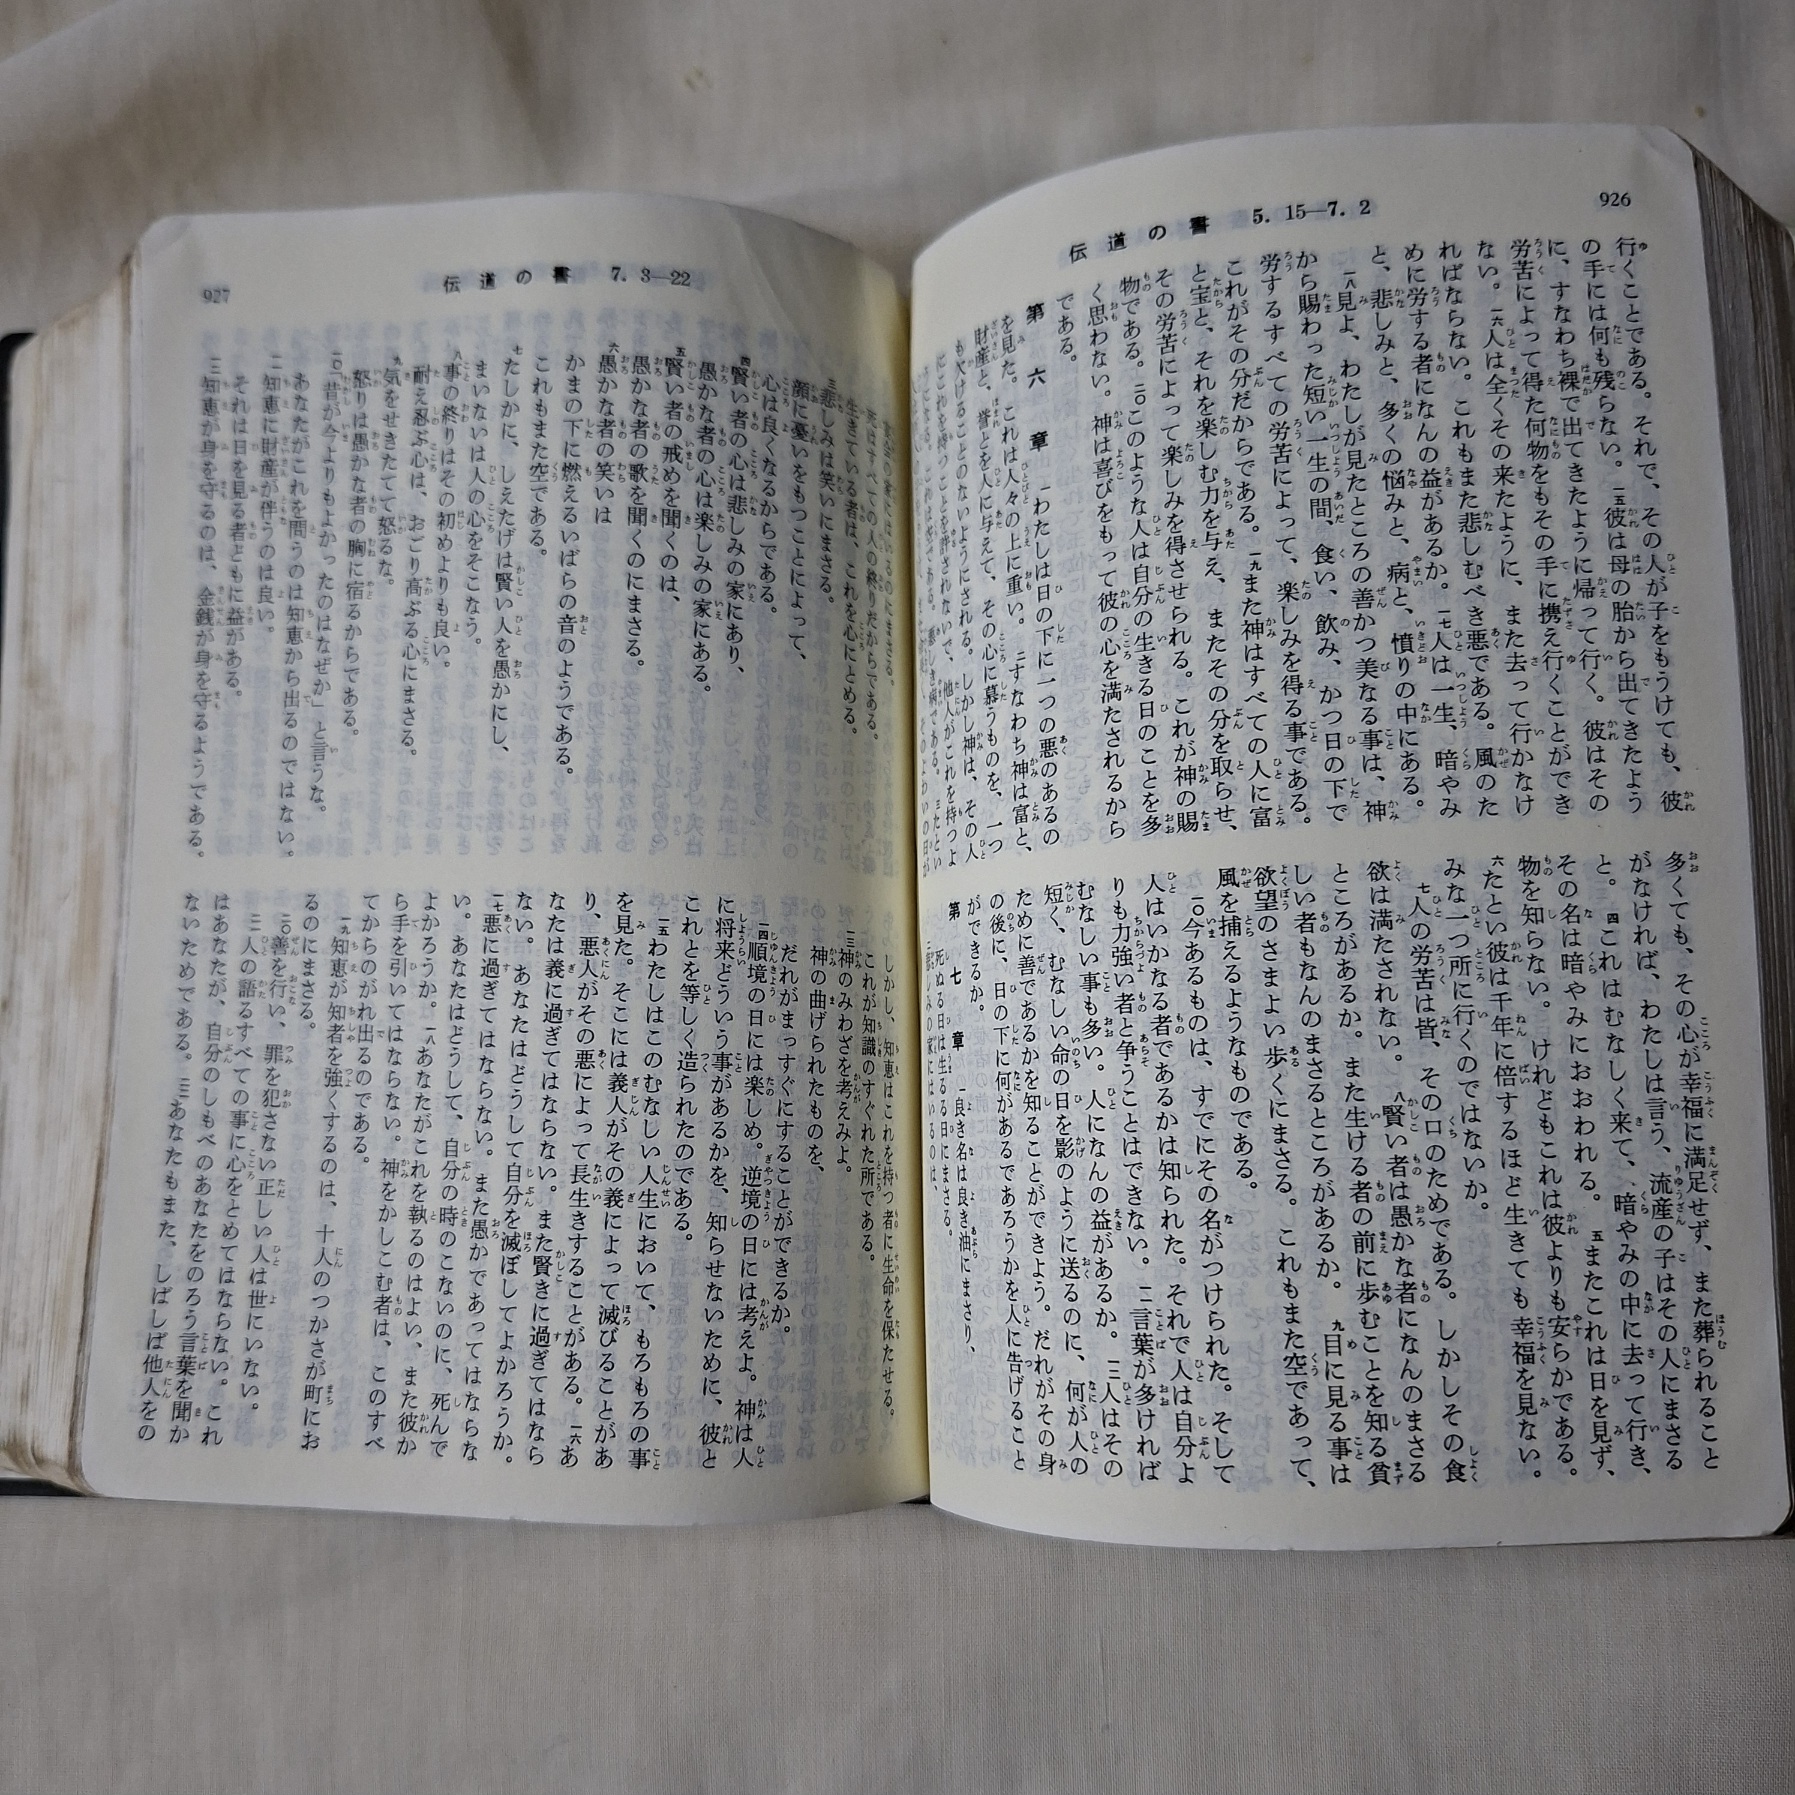 926
伝道の書 5. 15―7. 2
行くことである。それで、その人が子をもうけても、彼
の手には何も残らない。一五彼は母の胎から出てきたよう
に、すなわち裸で出てきたように帰って行く。彼はその
労苦によって得た何物をもその手に携え行くことができ
ない。一六人は全くその来たように、また去って行かなけ
ればならない。これもまた悲しむべき悪である。風のた
めに労する者になんの益があるか。一七人は一生、暗やみ
と、悲しみと、多くの悩みと、病と、憤りの中にある。
一八見よ、わたしが見たところの善かつ美なる事は、神
から賜わった短い一生の間、食い、飲み、かつ日の下で
労するすべての労苦によって、楽しみを得る事である。
これがその分だからである。一九また神はすべての人に富
と宝と、それを楽しむ力を与え、またその分を取らせ、
その労苦によって楽しみを得させられる。これが神の賜
物である。二〇このような人は自分の生きる日のことを多
く思わない。神は喜びをもって彼の心を満たされるから
である。
第六章
一わたしは日の下に一つの悪のあるの
を見た。これは人々の上に重い。二すなわち神は富と、
財産と、誉とを人に与えて、その心に慕うものを、一つ
も欠けることのないようにされる。しかし神は、その人
にこれを持つことを許されないで、他人がこれを持つよ
うになる。これは空である。悪しき病である。三たとい
多くても、その心が幸福に満足せず、また葬られること
がなければ、わたしは言う、流産の子はその人にまさる
と。四これはむなしく来て、暗やみの中に去って行き、
その名は暗やみにおおわれる。五またこれは日を見ず、
物を知らない。けれどもこれは彼よりも安らかである。
六たとい彼は千年に倍するほど生きても幸福を見ない。
みな一つ所に行くのではないか。
七人の労苦は皆、その口のためである。しかしその食
欲は満たされない。八賢い者は愚かな者になんのまさる
ところがあるか。また生ける者の前に歩むことを知る貧
しい者もなんのまさるところがあるか。九目に見る事は
欲望のさまよい歩くにまさる。これもまた空であって、
風を捕えるようなものである。
一〇今あるものは、すでにその名がつけられた。そして
人はいかなる者であるかは知られた。それで人は自分よ
りも力強い者と争うことはできない。一一言葉が多ければ
むなしい事も多い。人になんの益があるか。一二人はその
短く、むなしい命の日を影のように送るのに、何が人の
ために善であるかを知ることができよう。だれがその身
の後に、日の下に何があるであろうかを人に告げること
ができるか。
第七章
一良き名は良き油にまさり、
死ぬる日は生るる日にまさる。
二悲しみの家にはいるのは、
927
伝道の書 7. 3―22
宴会の家にはいるのにまさる。
死はすべての人の終りだからである。
生きている者は、これを心にとめる。
三悲しみは笑いにまさる。
顔に憂いをもつことによって、
心は良くなるからである。
四賢い者の心は悲しみの家にあり、
愚かな者の心は楽しみの家にある。
五賢い者の戒めを聞くのは、
愚かな者の歌を聞くのにまさる。
六愚かな者の笑いは
かまの下に燃えるいばらの音のようである。
これもまた空である。
七たしかに、しえたげは賢い人を愚かにし、
まいないは人の心をそこなう。
八事の終りはその初めよりも良い。
耐え忍ぶ心は、おごり高ぶる心にまさる。
九気をせきたてて怒るな。
怒りは愚かな者の胸に宿るからである。
一〇「昔が今よりもよかったのはなぜか」と言うな。
あなたがこれを問うのは知恵から出るのではない。
一一知恵に財産が伴うのは良い。
それは日を見る者どもに益がある。
一二知恵が身を守るのは、金銭が身を守るようである。
しかし、知恵はこれを持つ者に生命を保たせる。
これが知識のすぐれた所である。
一三神のみわざを考えみよ。
神の曲げられたものを、
だれがまっすぐにすることができるか。
一四順境の日には楽しめ。逆境の日には考えよ。神は人
に将来どういう事があるかを、知らせないために、彼と
これとを等しく造られたのである。
一五わたしはこのむなしい人生において、もろもろの事
を見た。そこには義人がその義によって滅びることがあ
り、悪人がその悪によって長生きすることがある。一六あ
なたは義に過ぎてはならない。また賢きに過ぎてはなら
ない。あなたはどうして自分を滅ぼしてよかろうか。
一七悪に過ぎてはならない。また愚かであってはならな
い。あなたはどうして、自分の時のこないのに、死んで
よかろうか。一八あなたがこれを執るのはよい、また彼か
ら手を引いてはならない。神をかしこむ者は、このすべ
てからのがれ出るのである。
一九知恵が知者を強くするのは、十人のつかさが町にお
るのにまさる。
二〇善を行い、罪を犯さない正しい人は世にいない。
二一人の語るすべての事に心をとめてはならない。これ
はあなたが、自分のしもべのあなたをのろう言葉を聞か
ないためである。二二あなたもまた、しばしば他人をの